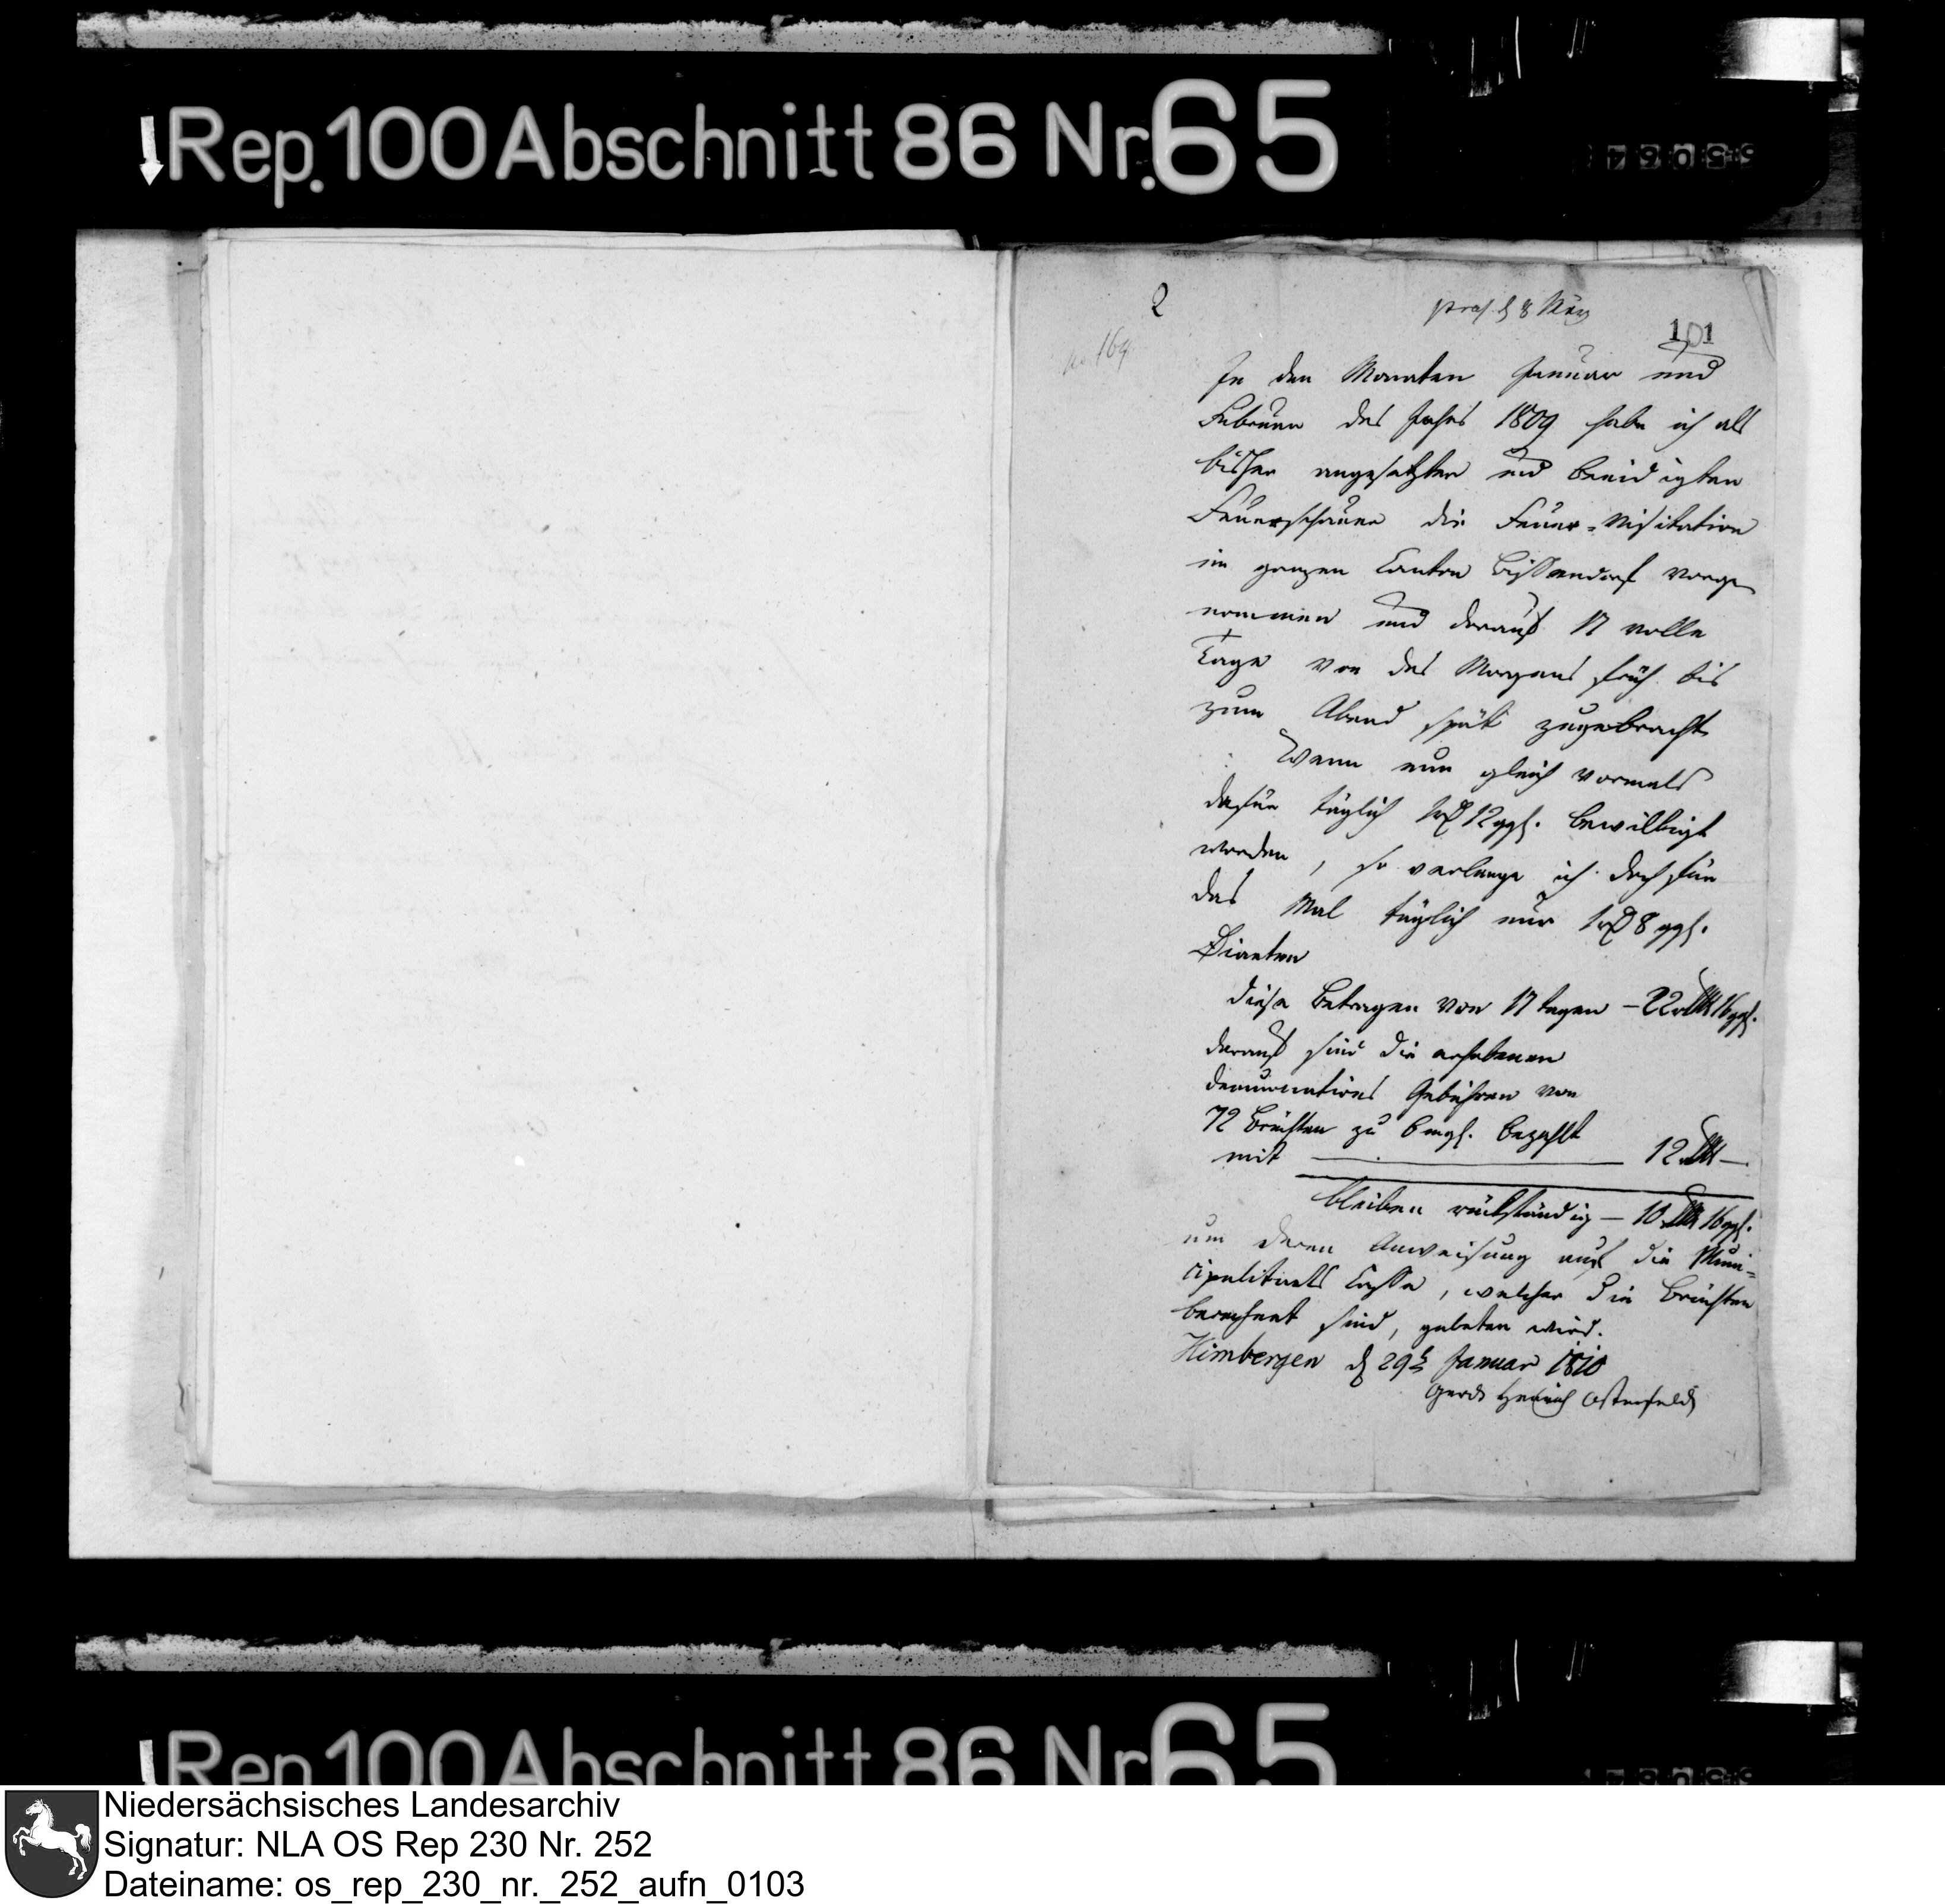 Rep. 100 Abschnitt 86 Nr. 65
2
praes. d 8 März
no. 169
101
In den Monaten Januar und
Februar des Jahrs 1809 habe ich als
bisher angesetzter und beeidigter
Feuerschauer die Feuer-Visitation
im ganzen Canton Bissendorf vorge
nommen und darauf 17 volle
Tage von des Morgens früh bis
zum Abend spät zugebracht
Wenn nun gleich vormals
dafür täglich 1 rt 12 ggl. bewilligt
worden, so verlange ich doch für
das Mal täglich nur 1 rt 8 ggl.
Diaeten
diese betragen von 17 tagen – 22 rt 16 ggl.
darauf sind die erhobenen
denunciations Gebühren von
72 Brüchten zu 6 mgl. bezahlt
mit — 12 rt —
bleiben rückständig – 10 rt 16 ggl.
um deren Anweisung auf die Muni-
cipalitaets Casse, welcher die Brüchten
berechnet sind, gebeten wird.
Himbergen d 29t Januar 1810
Gerd Henrich Osterfeld
Rep. 100 Abschnitt 86 Nr. 65
Niedersächsisches Landesarchiv
Signatur: NLA OS Rep 230 Nr. 252
Dateiname: os_rep_230_nr._252_aufn_0103